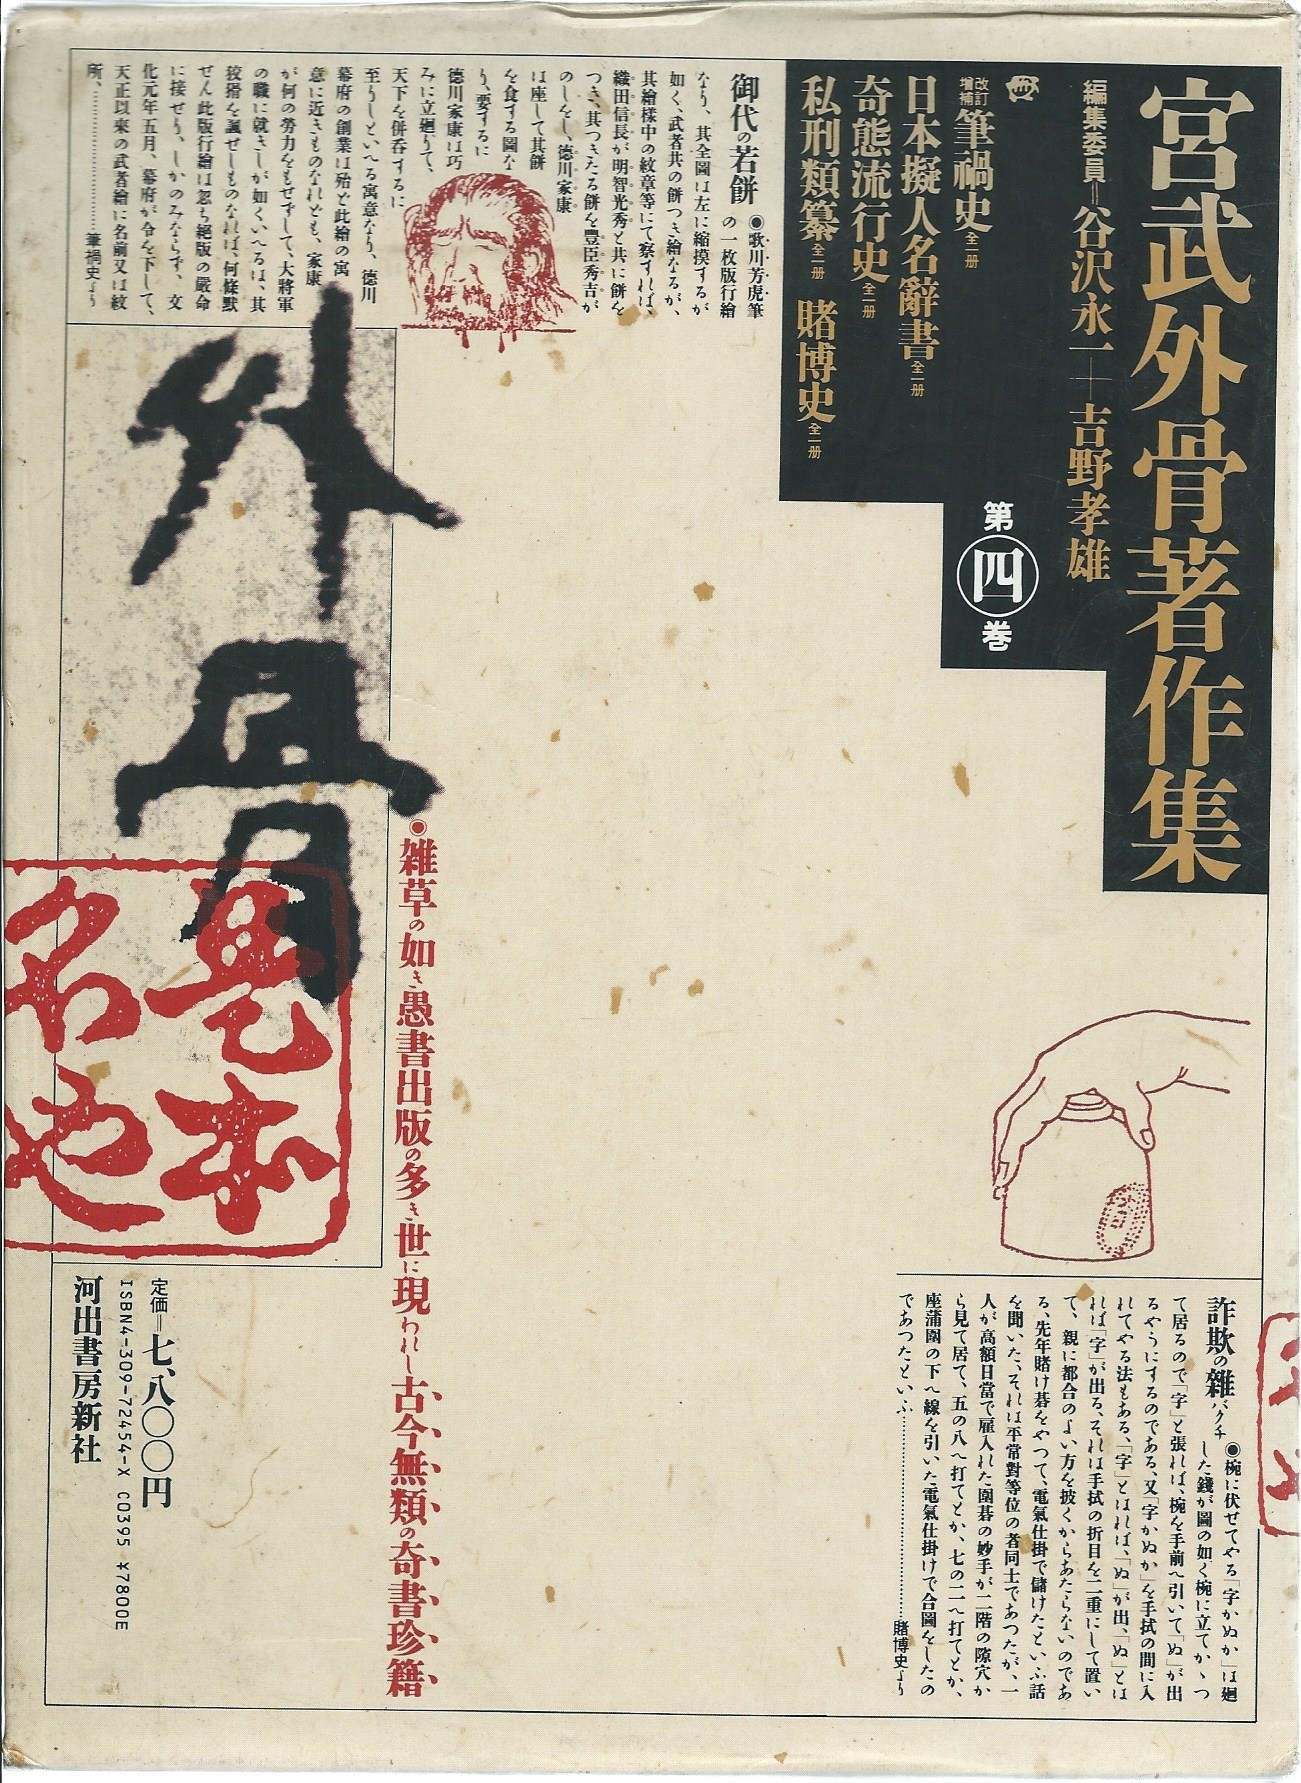 宮武外骨著作集
編集委員＝谷沢永一─吉野孝雄
第四巻
改訂増補筆禍史全一册
日本擬人名辭書全一册
奇態流行史全一册
私刑類纂全一册 賭博史全一册
御代の若餅 ◉歌川芳虎筆
の一枚版行繪
なり、其全圖は左に縮摸するが
如く、武者共の餅つき繪なるが、
其繪樣中の紋章等にて察すれば、
織田信長が明智光秀と共に餅を
つき、其つきたる餅を豐臣秀吉が
のしをし、德川家康
は座して其餅
を食する圖な
り、要するに
德川家康は巧
みに立廻りて、
天下を併呑するに
至りしといへる寓意なり、德川
幕府の創業は殆ど此繪の寓
意に近きものなれども、家康
が何の勞力をもせずして、大將軍
の職に就きしが如くいへるは、其
狡猾を諷ぜしものなれば、何條默
ぜん此版行繪は忽ち絕版の嚴命
に接せり、しかのみならず、文
化元年五月、幕府が令を下して、
天正以來の武者繪に名前又は紋
所、…………………筆禍史より
外骨
◉雑草の如き愚書出版の多き世に現われし古今無類の奇書珍籍
詐欺の雜バクチ ◉椀に伏せてやる「字かぬか」は廻
した錢が圖の如く椀に立てかゝつ
て居るので「字」と張れば、椀を手前へ引いて「ぬ」が出
るやうにするのである、又「字かぬか」を手拭の間に入
れてやる法もある、「字」とはれば、「ぬ」が出、「ぬ」とは
れば「字」が出る、それは手拭の折目を二重にして置い
て、親に都合のよい方を披くからあたらないのであ
る、先年賭け碁をやつて、電氣仕掛で儲けたといふ話
を聞いた、それは平常對等位の者同士であつたが、一
人が高額日當で雇入れた圍碁の妙手が二階の隙穴か
ら見て居て、五の八へ打てとか、七の二へ打てとか、
座蒲團の下へ線を引いた電氣仕掛けで合圖をしたの
であつたといふ……………………賭博史より
定価＝七、八〇〇円
ISBN4-309-72454-X C0395 ¥7800E
河出書房新社